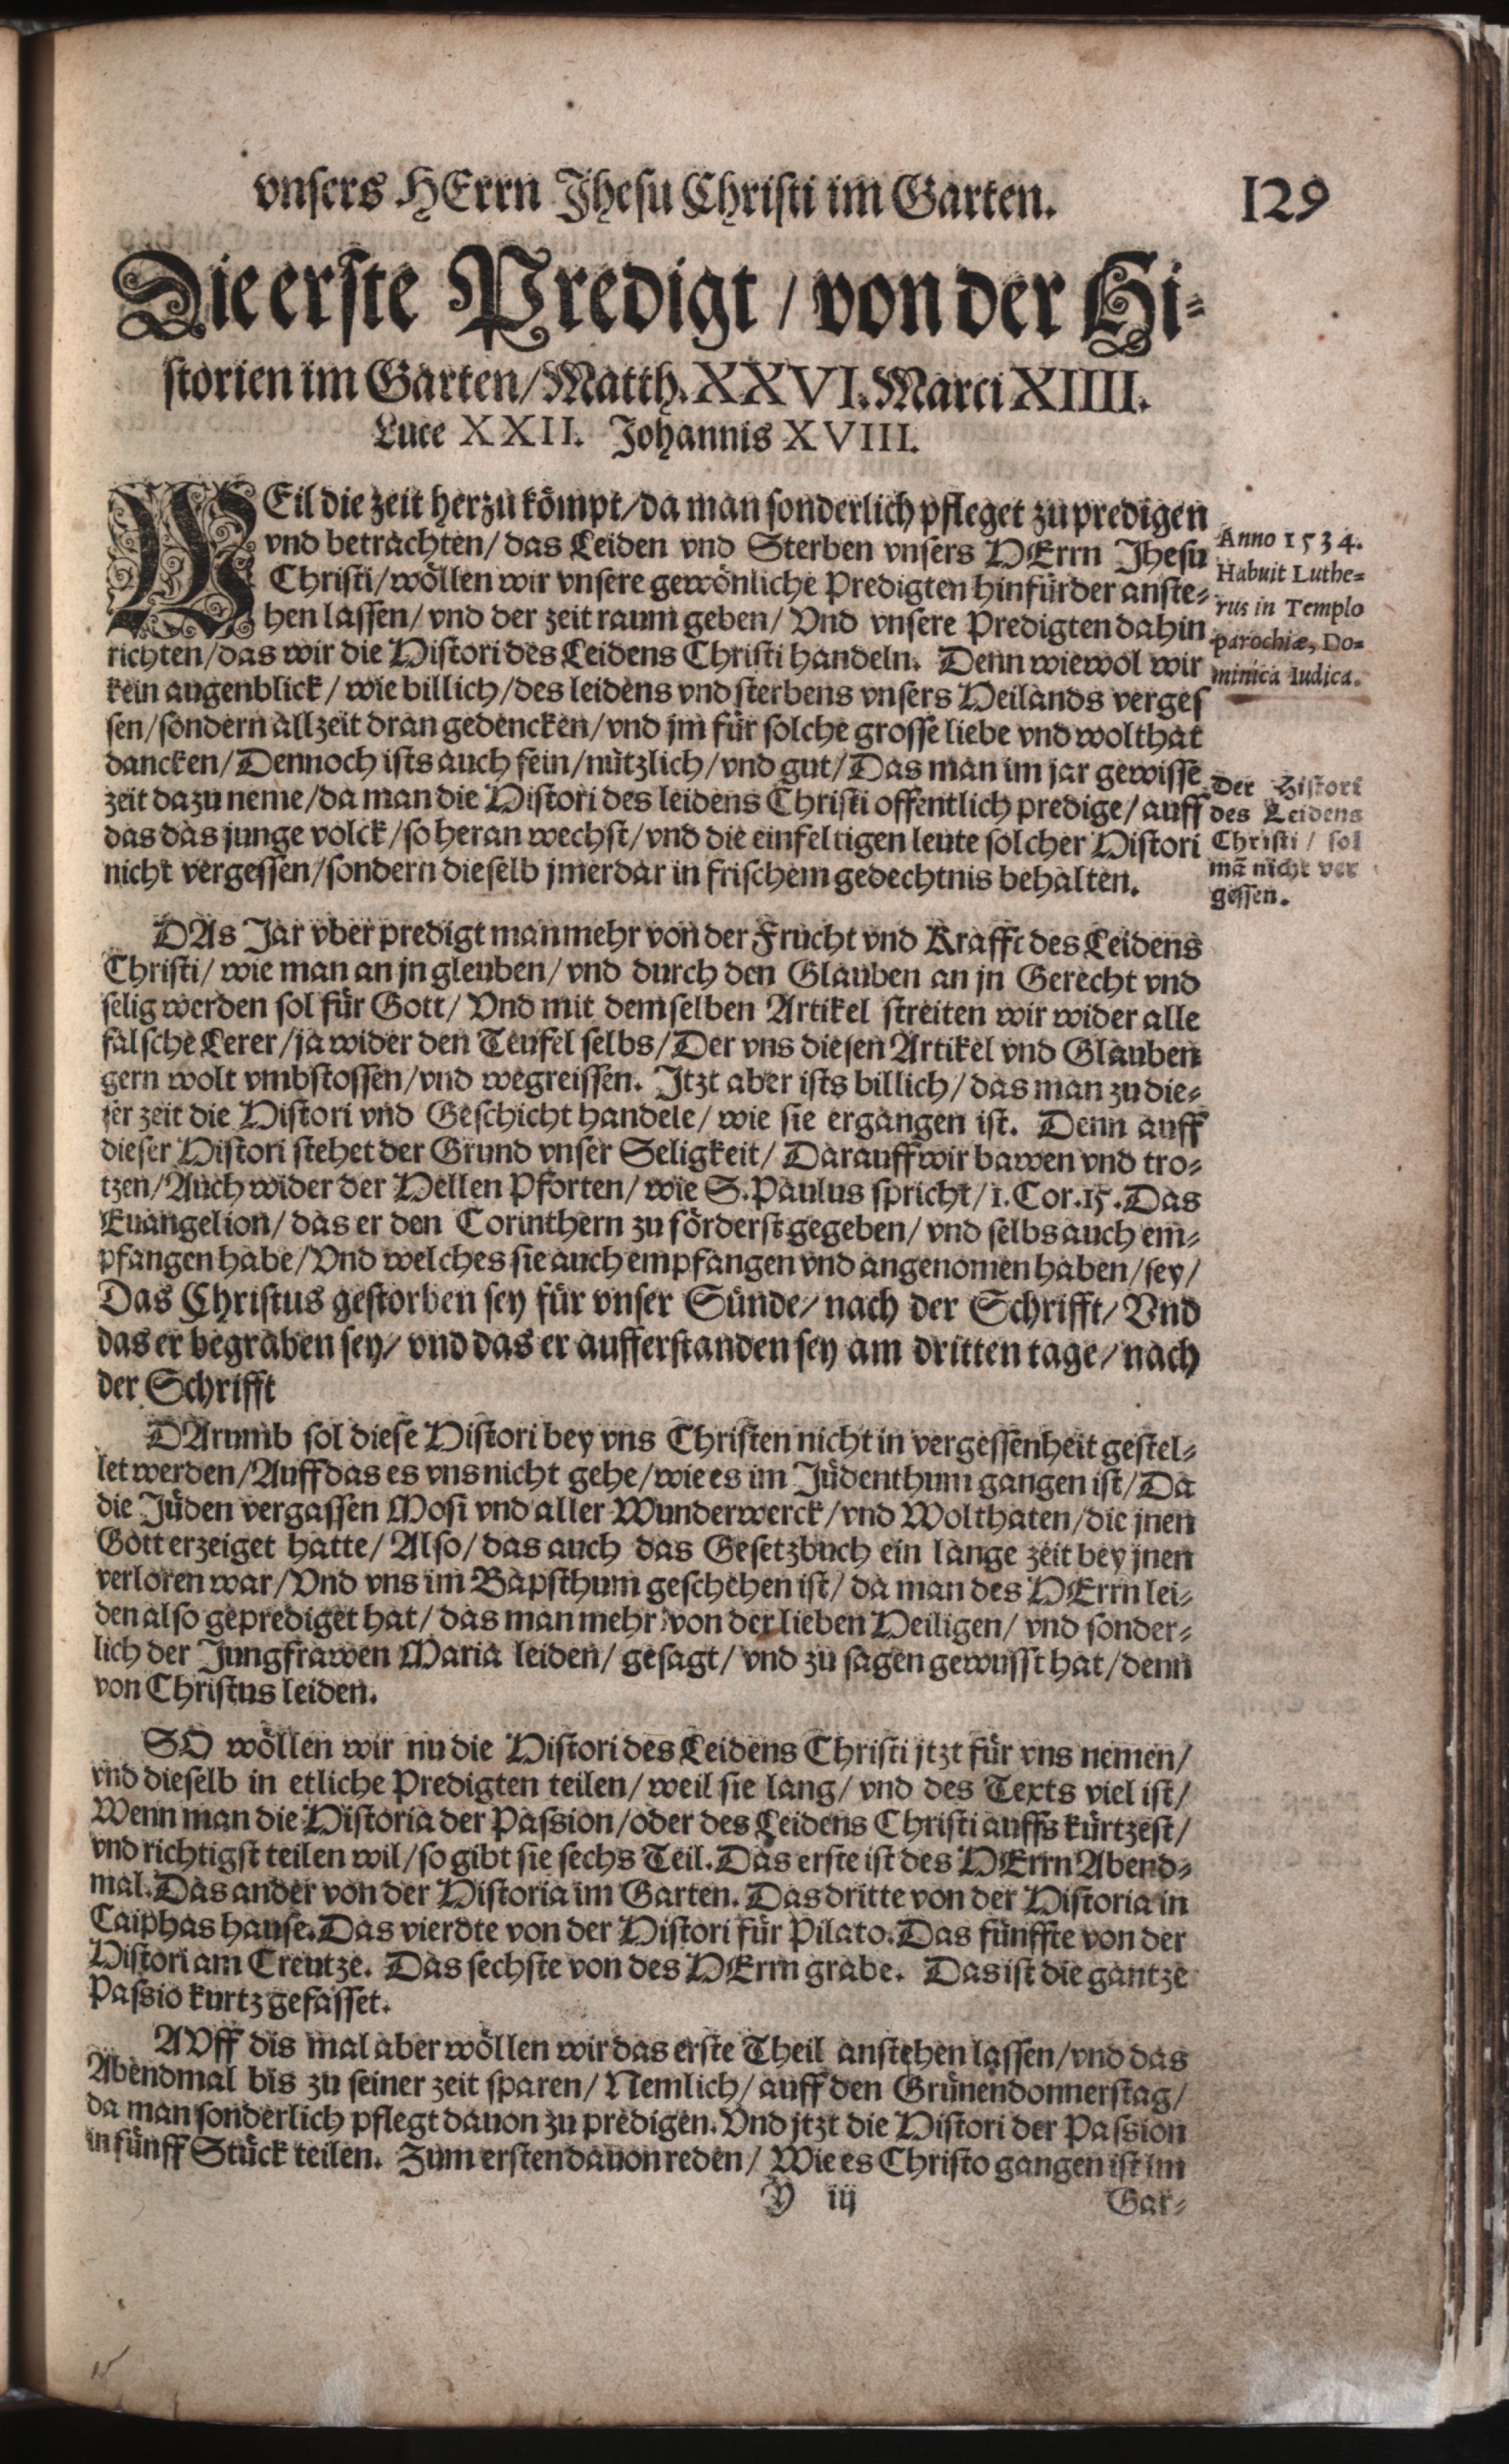 vnsers HErrn Jhesu Christi im Garten. 129
Die erste Predigt / von der Hi-
storien im Garten / Matth. XXVI. Marci XIIII.
Luce XXII. Johannis XVIII.
WEil die zeit herzu kömpt / da man sonderlich pfleget zu predigen
vnd betrachten / das Leiden vnd Sterben vnsers HErrn Jhesu
Christi / wöllen wir vnsere gewönliche Predigten hinfürder anste-
hen lassen / vnd der zeit raum geben / Vnd vnsere Predigten dahin
richten / das wir die Histori des Leidens Christi handeln. Denn wiewol wir
kein augenblick / wie billich / des leidens vnd sterbens vnsers Heilands verges
sen / sondern allzeit dran gedencken / vnd jm für solche grosse liebe vnd wolthat
dancken / Dennoch ists auch fein / nützlich / vnd gut / Das man im jar gewisse
zeit dazu neme / da man die Histori des leidens Christi offentlich predige / auff
das das junge volck / so heran wechst / vnd die einfeltigen leute solcher Histori
nicht vergessen / sondern dieselb jmerdar in frischem gedechtnis behalten.
Anno 1534.
Habuit Luthe-
rus in Templo
parochiæ, Do-
minica Iudica.
Der Histori
des Leidens
Christi / sol
mã nicht ver
gessen.
DAs Jar vber predigt man mehr von der Frucht vnd Krafft des Leidens
Christi / wie man an jn gleuben / vnd durch den Glauben an jn Gerecht vnd
selig werden sol für Gott / Vnd mit demselben Artikel streiten wir wider alle
falsche Lerer / ja wider den Teufel selbs / Der vns diesen Artikel vnd Glauben
gern wolt vmbstossen / vnd wegreissen. Itzt aber ists billich / das man zu die-
ser zeit die Histori vnd Geschicht handele / wie sie ergangen ist. Denn auff
dieser Histori stehet der Grund vnser Seligkeit / Darauff wir bawen vnd tro-
tzen / Auch wider der Hellen Pforten / wie S. Paulus spricht / 1. Cor. 15. Das
Euangelion / das er den Corinthern zu förderst gegeben / vnd selbs auch em-
pfangen habe / Vnd welches sie auch empfangen vnd angenomen haben / sey /
Das Christus gestorben sey für vnser Sünde / nach der Schrifft / Vnd
das er begraben sey / vnd das er aufferstanden sey am dritten tage / nach
der Schrifft
DArumb sol diese Histori bey vns Christen nicht in vergessenheit gestel-
let werden / Auff das es vns nicht gehe / wie es im Jüdenthum gangen ist / Da
die Jüden vergassen Mosi vnd aller Wunderwerck / vnd Wolthaten / die jnen
Gott erzeiget hatte / Also / das auch das Gesetzbuch ein lange zeit bey jnen
verloren war / Vnd vns im Bapsthum geschehen ist / da man des HErrn lei-
den also geprediget hat / das man mehr von der lieben Heiligen / vnd sonder-
lich der Jungfrawen Maria leiden / gesagt / vnd zu sagen gewusst hat / denn
von Christus leiden.
SO wöllen wir nu die Histori des Leidens Christi jtzt für vns nemen /
vnd dieselb in etliche Predigten teilen / weil sie lang / vnd des Texts viel ist /
Wenn man die Historia der Passion / oder des Leidens Christi auffs kürtzest /
vnd richtigst teilen wil / so gibt sie sechs Teil. Das erste ist des HErrn Abend-
mal. Das ander von der Historia im Garten. Das dritte von der Historia in
Caiphas hause. Das vierdte von der Histori für Pilato. Das fünffte von der
Histori am Creutze. Das sechste von des HErrn grabe. Das ist die gantze
Passio kurtz gefasset.
AVff dis mal aber wöllen wir das erste Theil anstehen lassen / vnd das
Abendmal bis zu seiner zeit sparen / Nemlich / auff den Grünendonnerstag /
da man sonderlich pflegt dauon zu predigen. Vnd jtzt die Histori der Passion
in fünff Stück teilen. Zum ersten dauon reden / Wie es Christo gangen ist im
Y iij Gar-